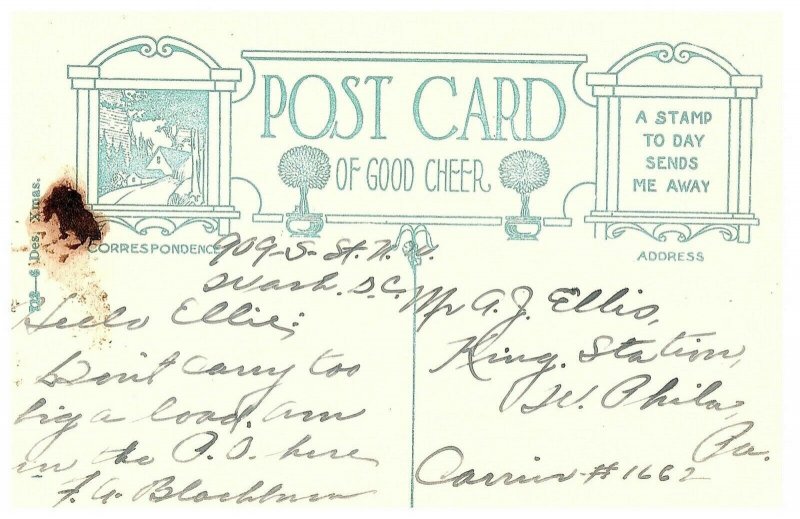 POST CARD
OF GOOD CHEER
A STAMP
TO DAY
SENDS
ME AWAY
CORRESPONDENCE
ADDRESS
702-6 Des. Xmas.
909-S. St. N.W.
Wash. D.C.
Hello Ellie;
Don't carry too
big a load, am
in the P.O. here
F. A. Blackburn
Mr A. J. Ellis,
King. Station,
W. Phila,
Pa.
Carrier #1662